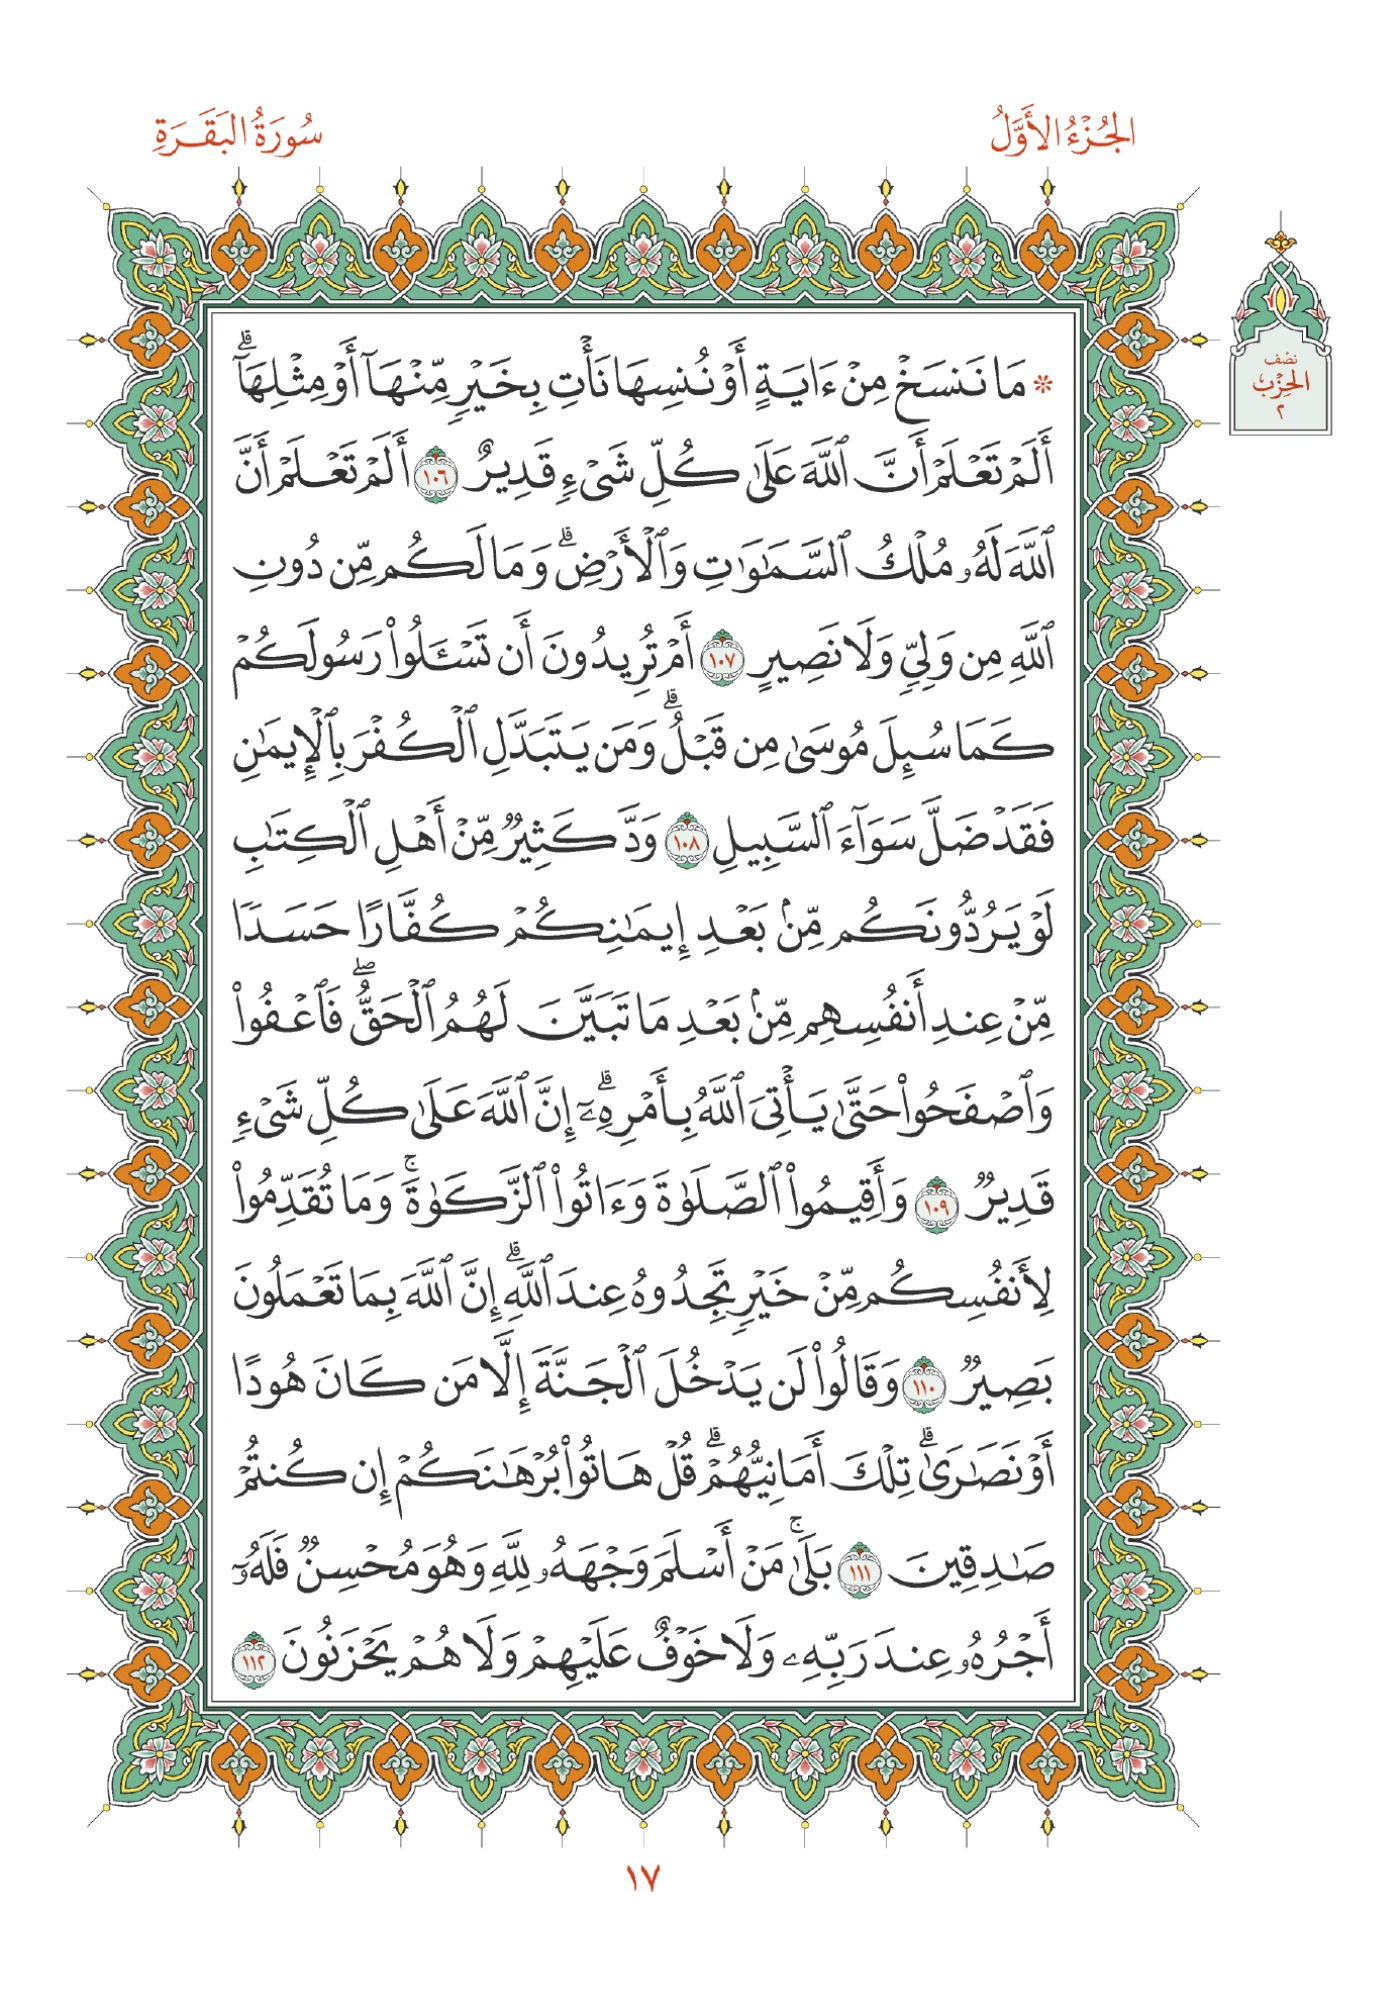 الجُزْءُ الأَوَّلُ
سُورَةُ البَقَرَةِ
نصف
الحِزْب
٢
* مَا نَنسَخْ مِنْ ءَايَةٍ أَوْ نُنسِهَا نَأْتِ بِخَيْرٍ مِّنْهَآ أَوْ مِثْلِهَآۗ
أَلَمْ تَعْلَمْ أَنَّ ٱللَّهَ عَلَىٰ كُلِّ شَىْءٍ قَدِيرٌ ١٠٦ أَلَمْ تَعْلَمْ أَنَّ
ٱللَّهَ لَهُۥ مُلْكُ ٱلسَّمَٰوَٰتِ وَٱلْأَرْضِۗ وَمَا لَكُم مِّن دُونِ
ٱللَّهِ مِن وَلِىٍّ وَلَا نَصِيرٍ ١٠٧ أَمْ تُرِيدُونَ أَن تَسْـَٔلُوا۟ رَسُولَكُمْ
كَمَا سُئِلَ مُوسَىٰ مِن قَبْلُۗ وَمَن يَتَبَدَّلِ ٱلْكُفْرَ بِٱلْإِيمَٰنِ
فَقَدْ ضَلَّ سَوَآءَ ٱلسَّبِيلِ ١٠٨ وَدَّ كَثِيرٌ مِّنْ أَهْلِ ٱلْكِتَٰبِ
لَوْ يَرُدُّونَكُم مِّنۢ بَعْدِ إِيمَٰنِكُمْ كُفَّارًا حَسَدًا
مِّنْ عِندِ أَنفُسِهِم مِّنۢ بَعْدِ مَا تَبَيَّنَ لَهُمُ ٱلْحَقُّۖ فَٱعْفُوا۟
وَٱصْفَحُوا۟ حَتَّىٰ يَأْتِىَ ٱللَّهُ بِأَمْرِهِۦٓۗ إِنَّ ٱللَّهَ عَلَىٰ كُلِّ شَىْءٍ
قَدِيرٌ ١٠٩ وَأَقِيمُوا۟ ٱلصَّلَوٰةَ وَءَاتُوا۟ ٱلزَّكَوٰةَۚ وَمَا تُقَدِّمُوا۟
لِأَنفُسِكُم مِّنْ خَيْرٍ تَجِدُوهُ عِندَ ٱللَّهِۗ إِنَّ ٱللَّهَ بِمَا تَعْمَلُونَ
بَصِيرٌ ١١٠ وَقَالُوا۟ لَن يَدْخُلَ ٱلْجَنَّةَ إِلَّا مَن كَانَ هُودًا
أَوْ نَصَٰرَىٰۗ تِلْكَ أَمَانِيُّهُمْۗ قُلْ هَاتُوا۟ بُرْهَٰنَكُمْ إِن كُنتُمْ
صَٰدِقِينَ ١١١ بَلَىٰۚ مَنْ أَسْلَمَ وَجْهَهُۥ لِلَّهِ وَهُوَ مُحْسِنٌ فَلَهُۥٓ
أَجْرُهُۥ عِندَ رَبِّهِۦ وَلَا خَوْفٌ عَلَيْهِمْ وَلَا هُمْ يَحْزَنُونَ ١١٢
١٧